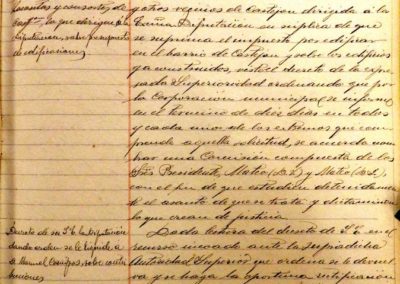 y otros vecinos de Castejon dirigida á la
Excma Diputacion en súplica de que
se suprima el impuesto por edificar
en el barrio de Castejon y sobre los edificios
ya construidos, visto el decreto de la expre
sada Superioridad ordenando que por
la Corporacion municipal se informe
en el término de diez dias en todos
y cada uno de los extremos que com
prende aquella solicitud, se acuerda nom
brar una Comision compuesta de los
Sres Presidente, Matéo y Matéo
con el fin de que estudien detenidamen
te el asunto de que se trata y dictaminen
lo que crean de justicia.
Dada lectura del decreto de S.E. en el
recurso incoado ante la supradicha
Autoridad Superior que ordena se le devuel
va y se haga la oportuna
y consortes de
Castn, la que dirigen á la
Diputacion, sobre impuesto
de edificaciones.
Decreto de su S.E. la Diputacion
dando orden se le liquide á
Manuel sobre contri
buciones